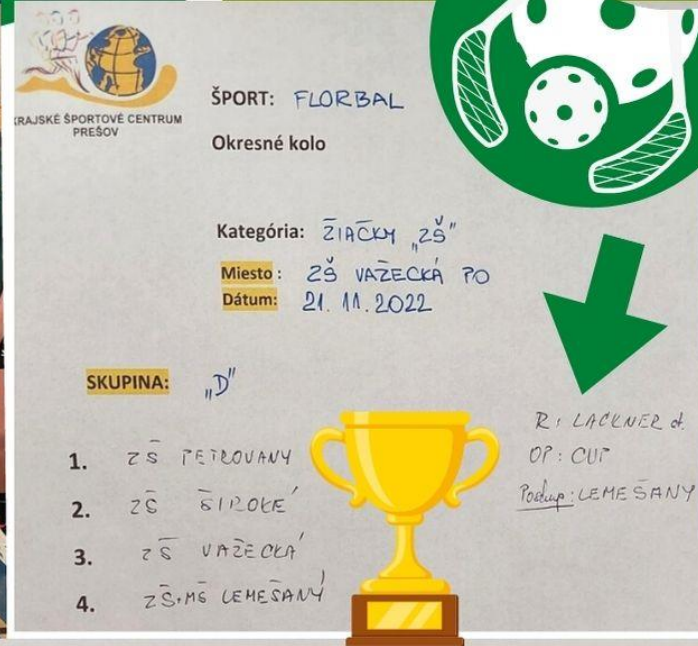 KRAJSKÉ ŠPORTOVÉ CENTRUM
PREŠOV
ŠPORT: FLORBAL
Okresné kolo
Kategória: ŽIAČKY „ZŠ"
Miesto : ZŠ VAŽECKÁ PO
Dátum: 21. 11. 2022
SKUPINA: „D"
1. ZŠ PETROVANY
2. ZŠ ŠIROKÉ
3. ZŠ VAŽECKÁ
4. ZŠ+MŠ LEMEŠANY
R: LACKNER st.
OP: CUP
Postup: LEMEŠANY